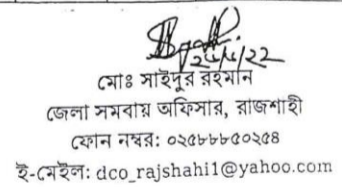 ২৫/৮/২২
মোঃ সাইদুর রহমান
জেলা সমবায় অফিসার, রাজশাহী
ফোন নম্বর: ০২৫৮৮৮৫০২৫৪
ই-মেইল: dco_rajshahi1@yahoo.com